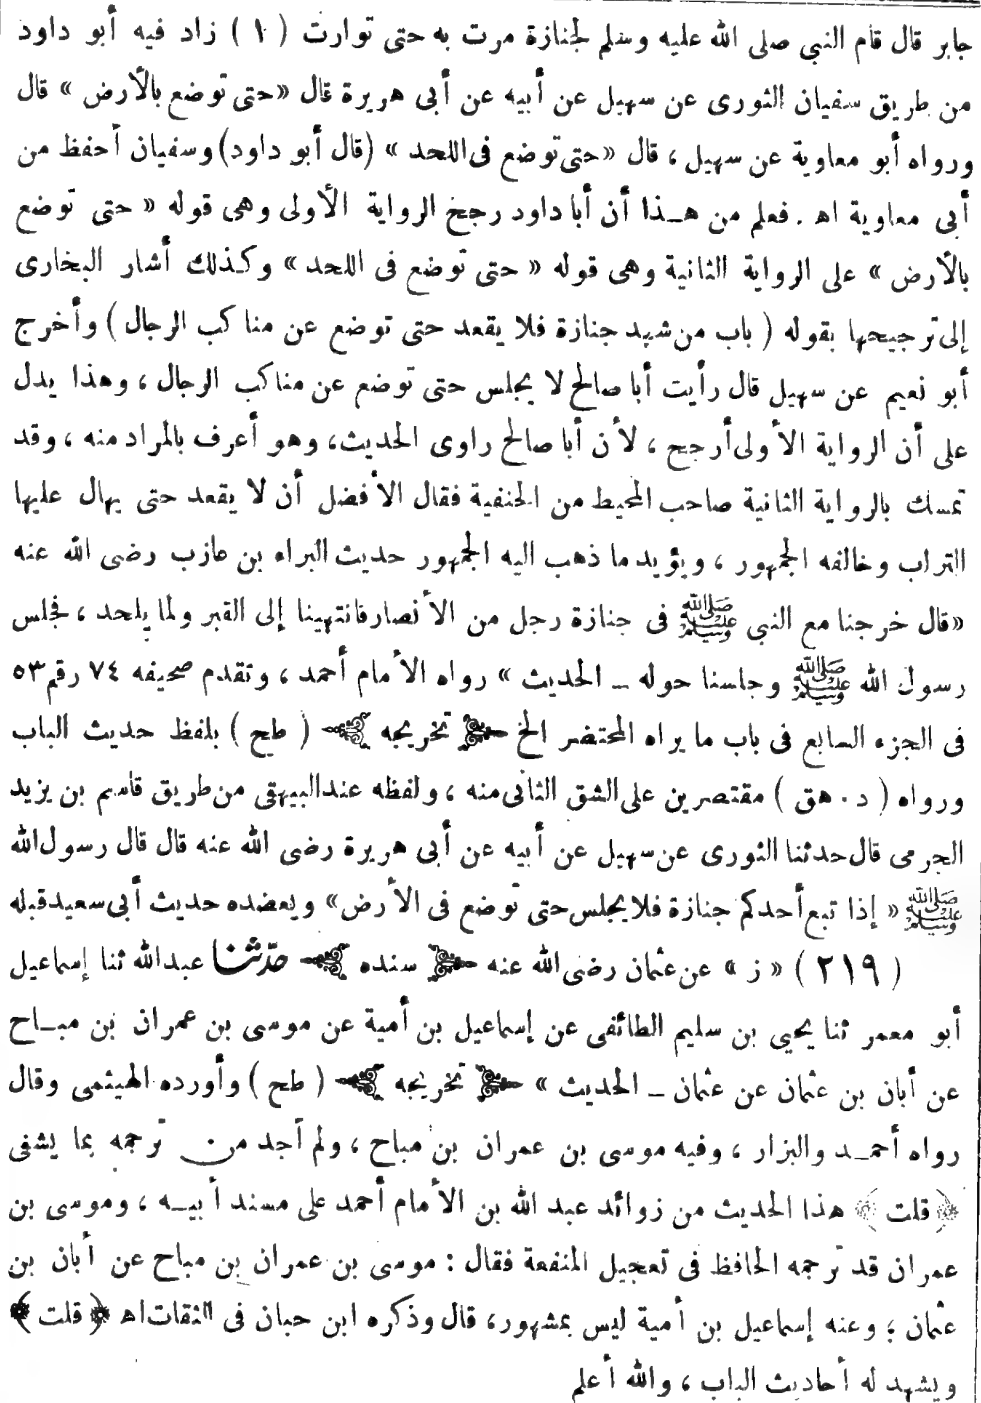 جابر قال قام النبي صلى الله عليه وسلم لجنازة مرت به حتى توارت (١) زاد فيه أبو داود
من طريق سفيان الثورى عن سهيل عن أبيه عن أبى هريرة قال «حتى توضع بالأرض» قال
ورواه أبو معاوية عن سهيل، قال «حتى توضع فى اللحد» (قال أبو داود) وسفيان أحفظ من
أبى معاوية اهـ. فعلم من هـذا أن أبا داود رجح الرواية الأولى وهى قوله «حتى توضع
بالأرض» على الرواية الثانية وهى قوله «حتى توضع فى اللحد» وكذلك أشار البخارى
إلى ترجيحها بقوله (باب من شهد جنازة فلا يقعد حتى توضع عن مناكب الرجال) وأخرج
أبو نعيم عن سهيل قال رأيت أبا صالح لا يجلس حتى توضع عن مناكب الرجال، وهذا يدل
على أن الرواية الأولى أرجح، لأن أبا صالح راوى الحديث، وهو أعرف بالمراد منه، وقد
تمسك بالرواية الثانية صاحب المحيط من الحنفية فقال الأفضل أن لا يقعد حتى يهال عليها
التراب وخالفه الجمهور، ويؤيد ما ذهب اليه الجمهور حديث البراء بن عازب رضى الله عنه
«قال خرجنا مع النبي ﷺ فى جنازة رجل من الأنصار فانتهينا إلى القبر ولما يلحد، فجلس
رسول الله ﷺ وجلسنا حوله ــ الحديث» رواه الأمام أحمد، وتقدم صحيفه ٧٤ رقم ٥٣
فى الجزء السابع فى باب ما يراه المحتضر الخ ﴿تخريجه﴾ (طح) بلفظ حديث الباب
ورواه (د. هق) مقتصرين على الشق الثانى منه، ولفظه عند البيهقى من طريق قاسم بن يزيد
الجرمى قال حدثنا الثورى عن سهيل عن أبيه عن أبى هريرة رضى الله عنه قال قال رسول الله
ﷺ «إذا تبع أحدكم جنازة فلا يجلس حتى توضع فى الأرض» ويعضده حديث أبى سعيد قبله
(٢١٩) «ز» عن عثمان رضى الله عنه ﴿سنده﴾ حدّثنا عبد الله ثنا إسماعيل
أبو معمر ثنا يحيى بن سليم الطائفى عن إسماعيل بن أمية عن موسى بن عمران بن مبـاح
عن أبان بن عثمان عن عثمان ــ الحديث» ﴿تخريجه﴾ (طح) وأورده الهيثمى وقال
رواه أحمـد والبزار، وفيه موسى بن عمران بن مباح، ولم أجد من ترجمه بما يشفى
﴿قلت﴾ هذا الحديث من زوائد عبد الله بن الأمام أحمد على مسند أبيـه، وموسى بن
عمران قد ترجمه الحافظ فى تعجيل المنفعة فقال: موسى بن عمران بن مباح عن أبان بن
عثمان؛ وعنه إسماعيل بن أمية ليس بمشهور، قال وذكره ابن حبان فى الثقات اهـ ﴿قلت﴾
ويشهد له أحاديث الباب، والله أعلم